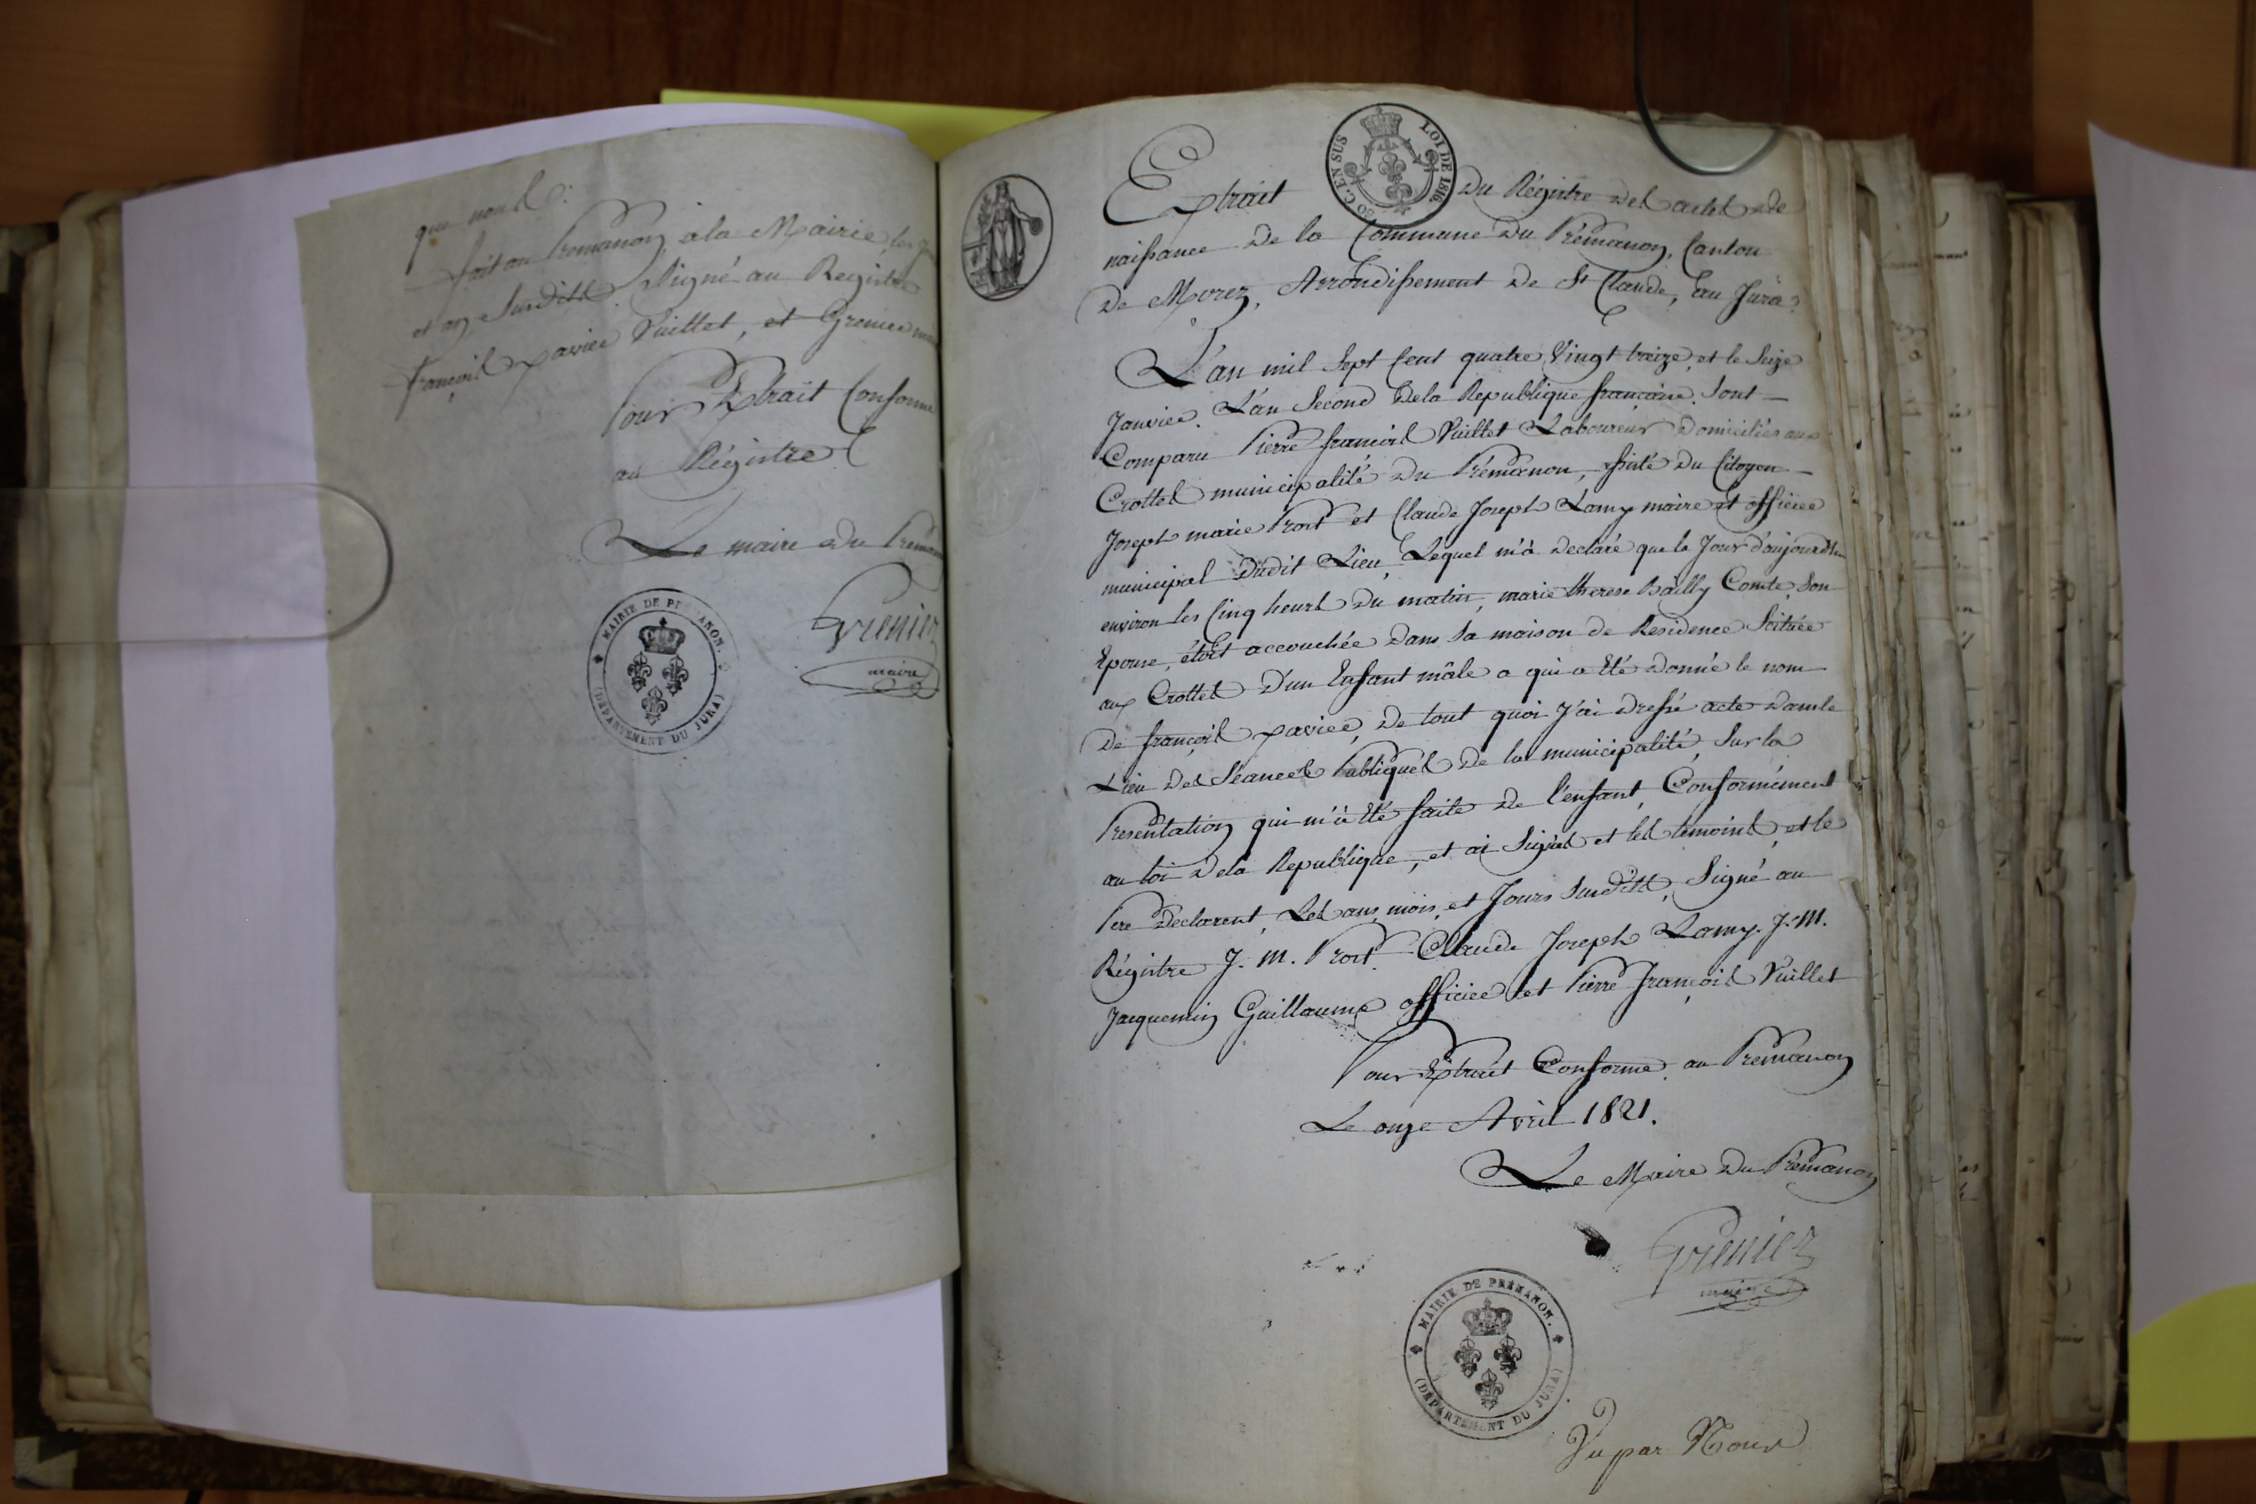 que nous
fait au Premanon, à la Mairie, les
et an Susdits. Signé au Registre
françois xavier Vuillet, et Grenier
Pour Extrait Conforme
au Régistre
Le maire du
Grenier
maire
MAIRIE DE PRÉMANON.
(DÉPARTEMENT DU JURA)
30 C. EN SUS
LOI DE 1816.
Extrait du Régistre des actes de
naissance de la Commune du Prémanon, Canton
de Morez, Arrondissement de St Claude, au Jura.
L'an mil sept Cent quatre Vingt treize, et le Seize
Janvier. L'an Second de la Republique francaise. Sont
Comparu Pierre françois Vuillet Laboureur domicilié aux
Crottes municipalité du Prémanon, assisté du Citoyen
Joseph marie Prost et Claude Joseph Lamy maire et officier
municipal dudit Lieu, Lequel m'a declaré que le Jour d'aujourd'hui
environ les Cinq heures du matin, marie therese Bailly Comte, Son
Epouse, étoit accouchée dans sa maison de Residence Scituée
aux Crottes d'un Enfant mâle a qui a été donné le nom
de françois xavier, de tout quoi J'ai dressé acte dans le
Lieu des Séances Publiques de la municipalité, Sur la
Presentation qui m'a été faite de l'enfant, Conformément
au loi de la Republique, et ai Signés et les témoins, et le
Pere declarent, Les ans, mois, et Jours Susdits, Signé au
Régistre J. M. Prost. Claude Joseph Lamy. J. M.
Jacquemin Guillaume officier et Pierre françois Vuillet
Pour Extrait Conforme. au Premanon
Le onze Avril 1821.
Le Maire du Prémanon
Grenier
maire
MAIRIE DE PRÉMANON.
(DÉPARTEMENT DU JURA)
Vu par Nous